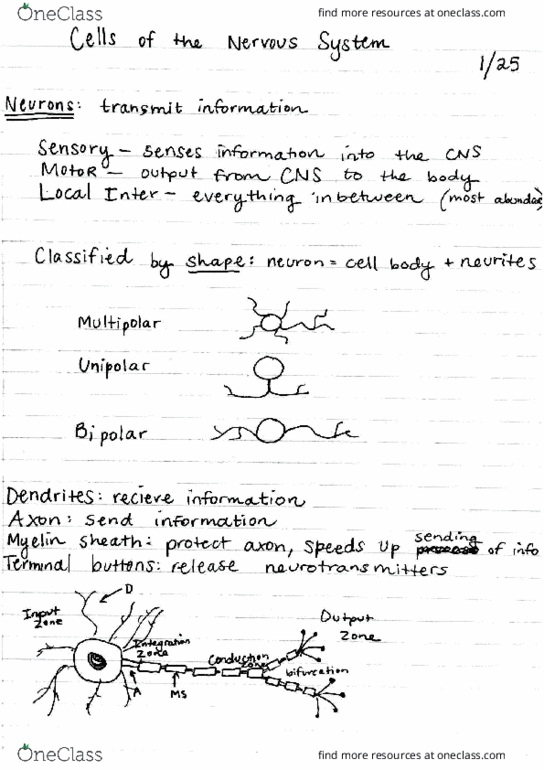 OneClass find more resources at oneclass.com
Cells of the Nervous System
1/25
Neurons: transmit information
Sensory - senses information into the CNS
Motor - output from CNS to the body
Local Inter - everything inbetween (most abundant)
Classified by shape: neuron = cell body + neurites
Multipolar
Unipolar
Bipolar
Dendrites: recieve information
Axon: send information
sending
Myelin sheath: protect axon, speeds up process of info
Terminal buttons: release neurotransmitters
D
Input Zone
Output Zone
Integration Zone
Conduction Zone
bifurcation
A
MS
OneClass find more resources at oneclass.com